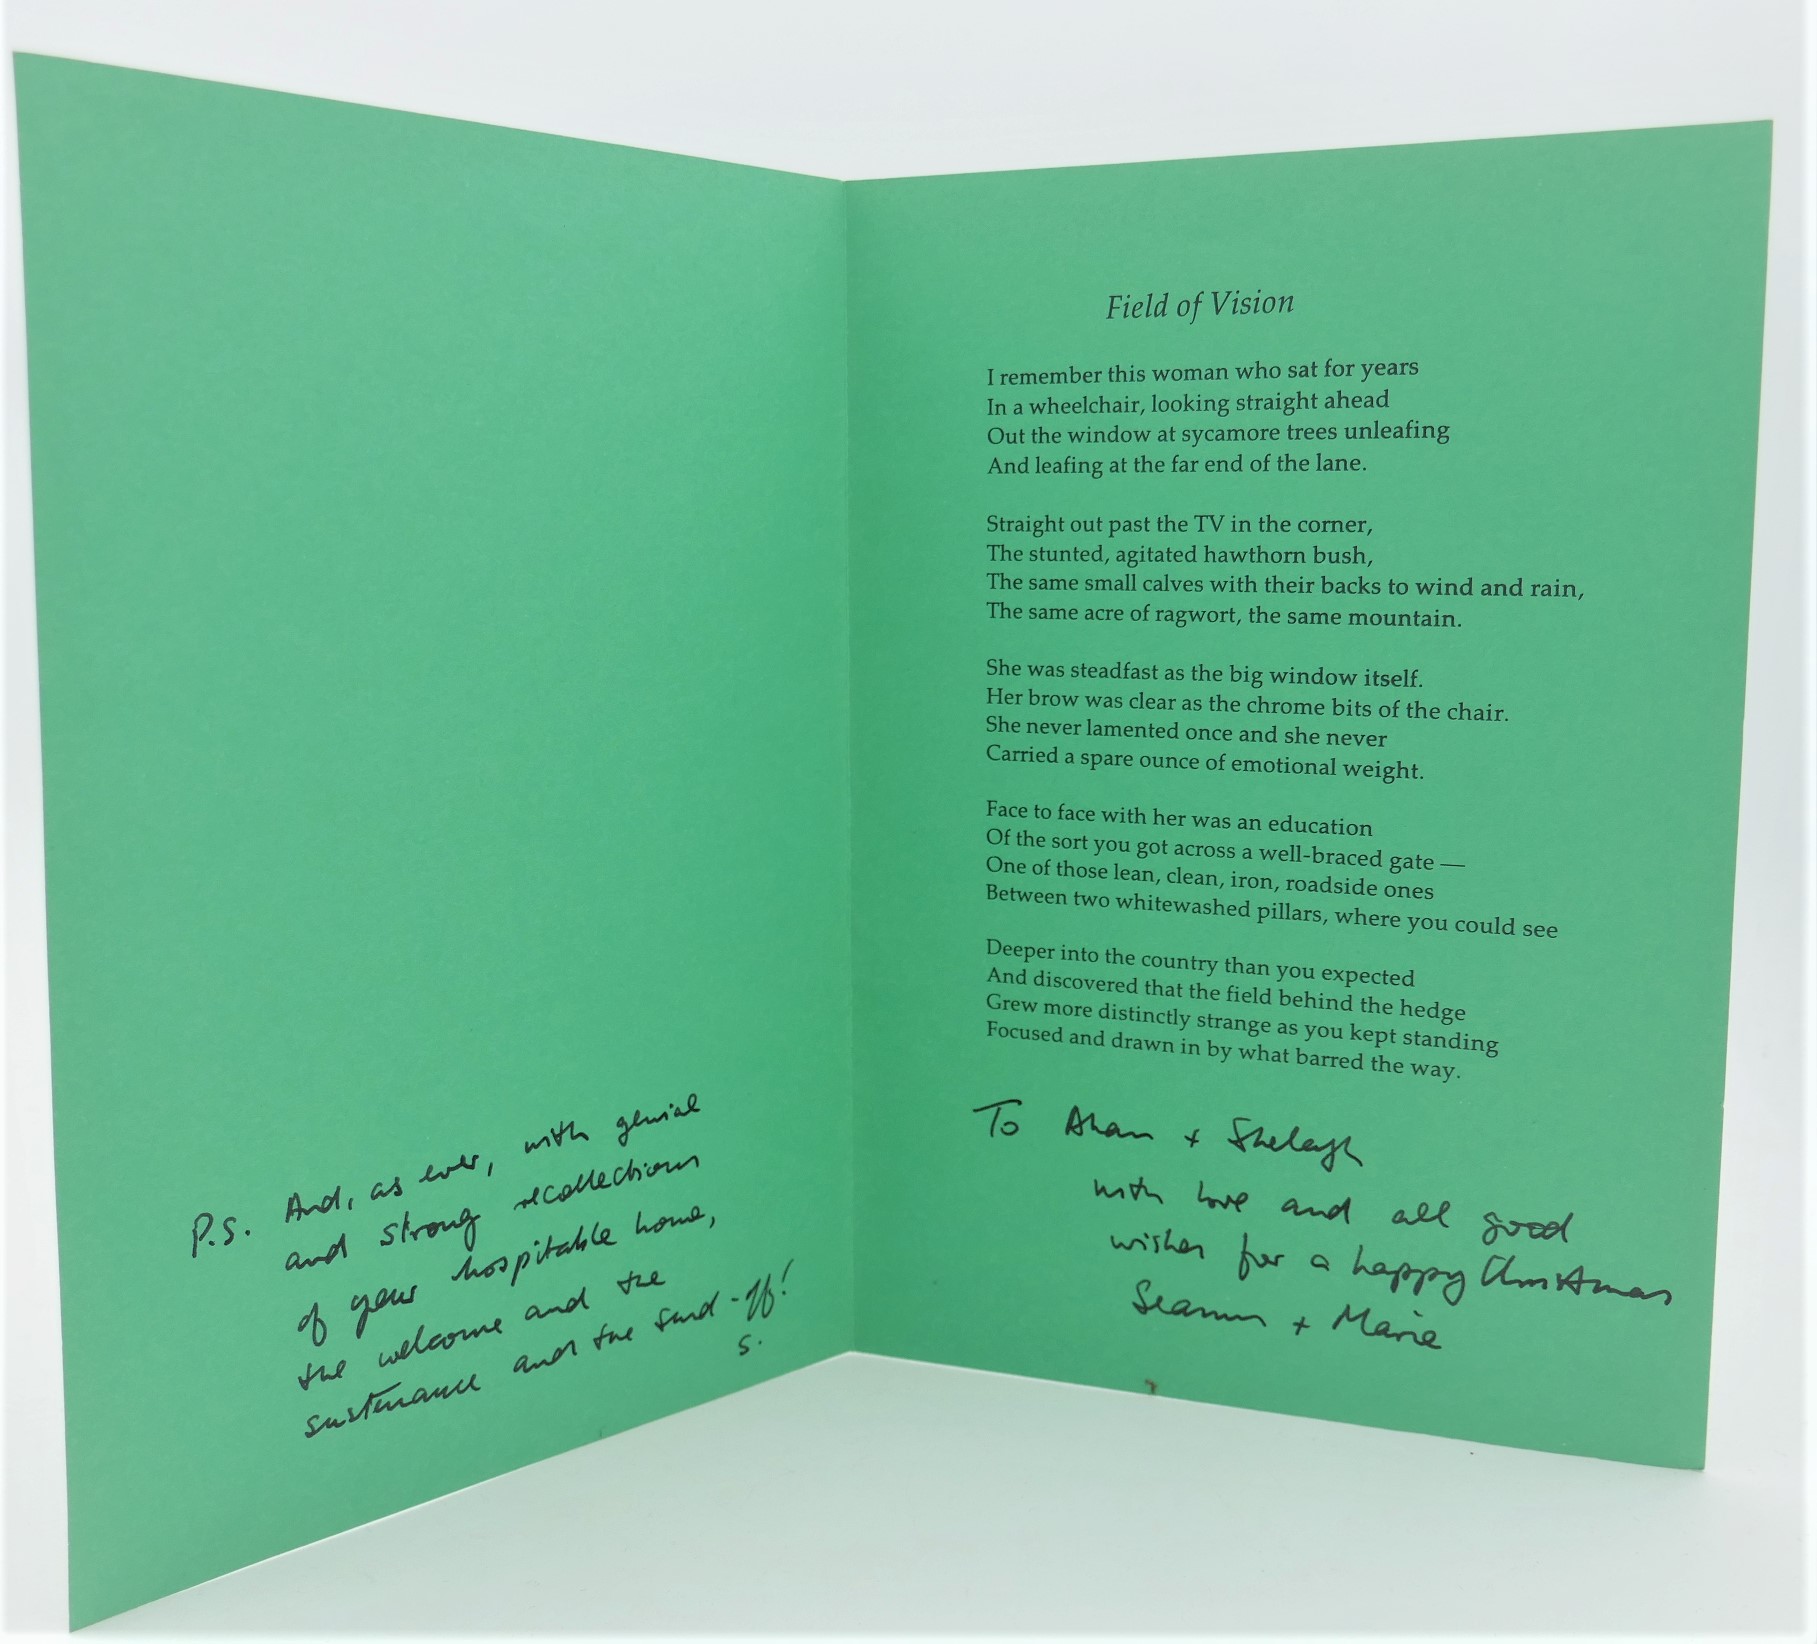 P.S. And, as ever, with genial
and strong recollections
of your hospitable home,
the welcome and the
sustenance and the send-off!
S.
Field of Vision
I remember this woman who sat for years
In a wheelchair, looking straight ahead
Out the window at sycamore trees unleafing
And leafing at the far end of the lane.
Straight out past the TV in the corner,
The stunted, agitated hawthorn bush,
The same small calves with their backs to wind and rain,
The same acre of ragwort, the same mountain.
She was steadfast as the big window itself.
Her brow was clear as the chrome bits of the chair.
She never lamented once and she never
Carried a spare ounce of emotional weight.
Face to face with her was an education
Of the sort you got across a well-braced gate —
One of those lean, clean, iron, roadside ones
Between two whitewashed pillars, where you could see
Deeper into the country than you expected
And discovered that the field behind the hedge
Grew more distinctly strange as you kept standing
Focused and drawn in by what barred the way.
To + Shelagh
with love and all good
wishes for a happy Christmas
Seamus + Marie